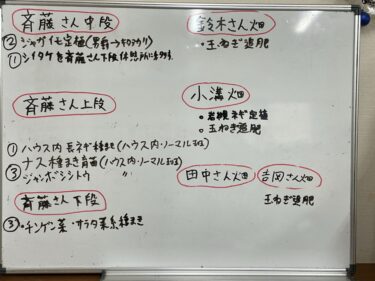 斉藤さん中段
② ジャガイモ定植(男爵→キタアカリ)
① シイタケを斉藤さん下段休憩所に
斉藤さん上段
① ハウス内長ネギ種まき(ハウス内・ノーマル2班)
ナス種まき育苗(ハウス内・ノーマル2班)
③ ジャンボシシトウ 〃
斉藤さん下段
③ ・チンゲン菜・サラダ菜系種まき
鈴木さん畑
・玉ねぎ追肥
小溝畑
・岩槻ネギ定植
・玉ねぎ追肥
田中さん畑 吉岡さん畑
玉ねぎ追肥